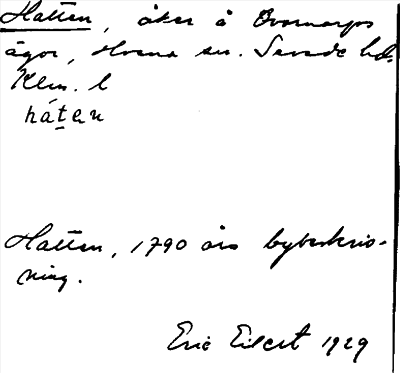 Hatten, åker å Ovarnarps
ägor, Hvena sn. Sevede hd.
Klm. l
hátɛn
Hatten, 1790 års bybeskriv-
ning.
Eric Eilert 1929